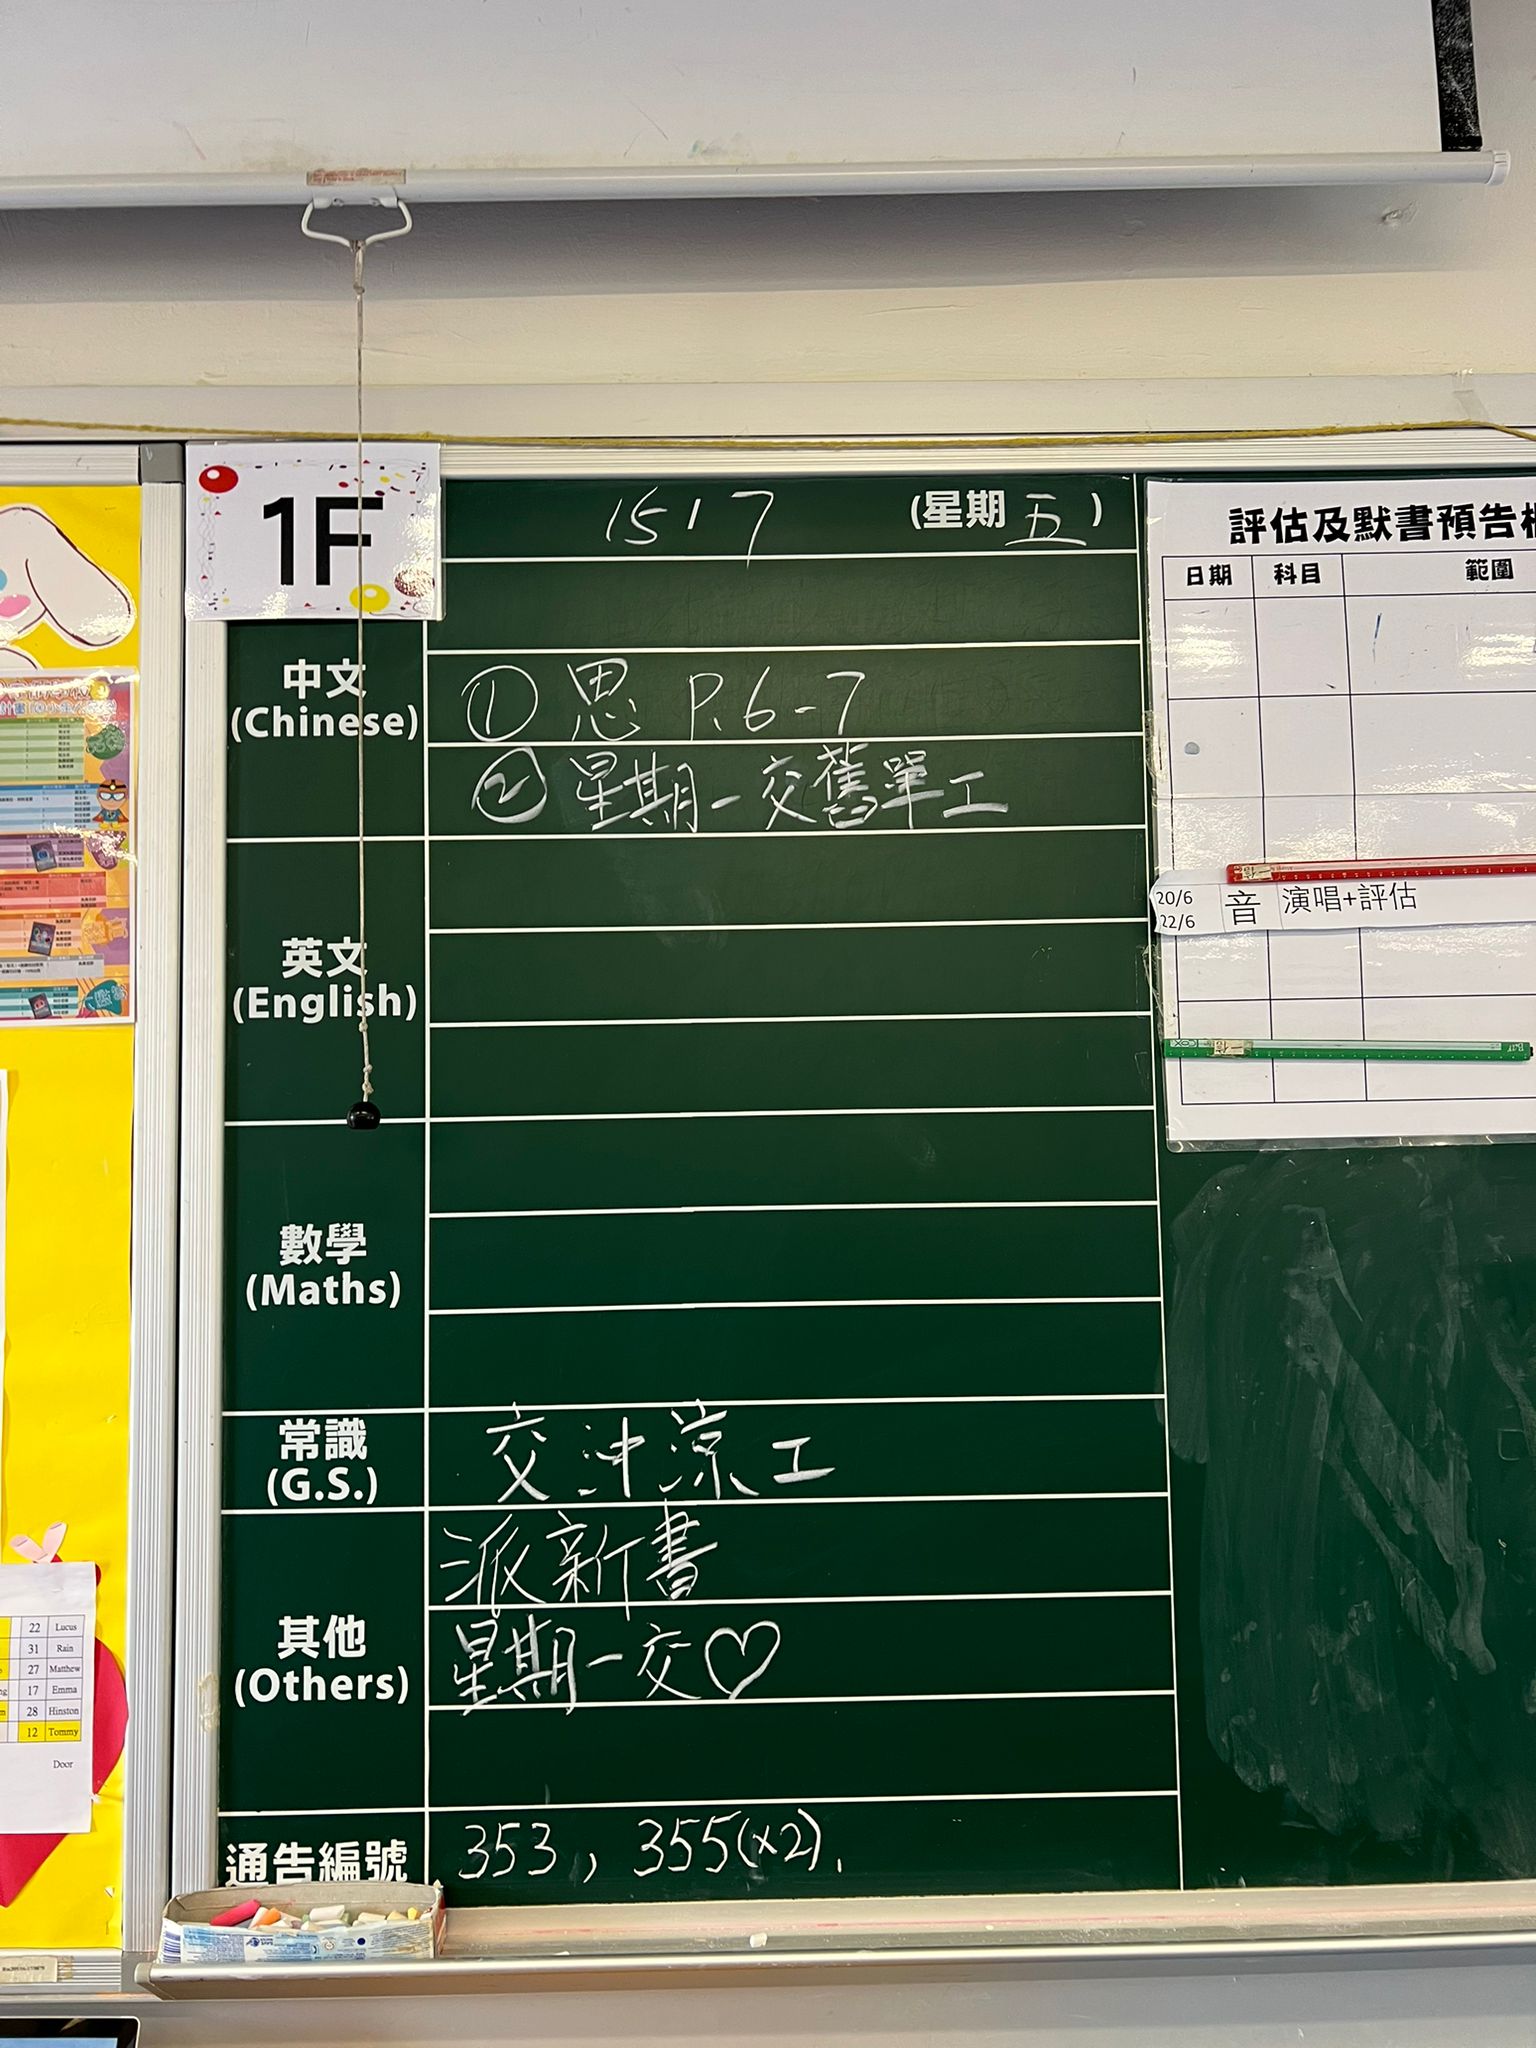 1F
15 / 7 (星期五)
中文
(Chinese)
① 思 P.6-7
② 星期一交舊單工
英文
(English)
數學
(Maths)
常識
(G.S.)
交沖涼工
其他
(Others)
派新書
星期一交♡
通告編號
353, 355(×2).
評估及默書預告
日期 科目 範圍
20/6
22/6
音 演唱+評估
22 Lucus
31 Rain
27 Matthew
17 Emma
28 Hinston
12 Tommy
Door